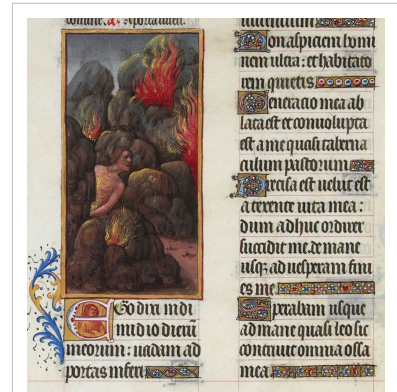 Ego dixi in di
midio dieru
meorum : uadam ad
portas inferi
Non aspiciam homi
nem ultra : et habitato
rem quietis
Generacio mea ab
lata est et conuoluta
est a me quasi taberna
culum pastorum
Precisa est uelut est
a texente uita mea :
dum adhuc ordirer
succidit me. de mane
usq; ad uesperam fini
es me
Sperabam usque
ad mane quasi leo sic
contriuit omnia ossa
mea